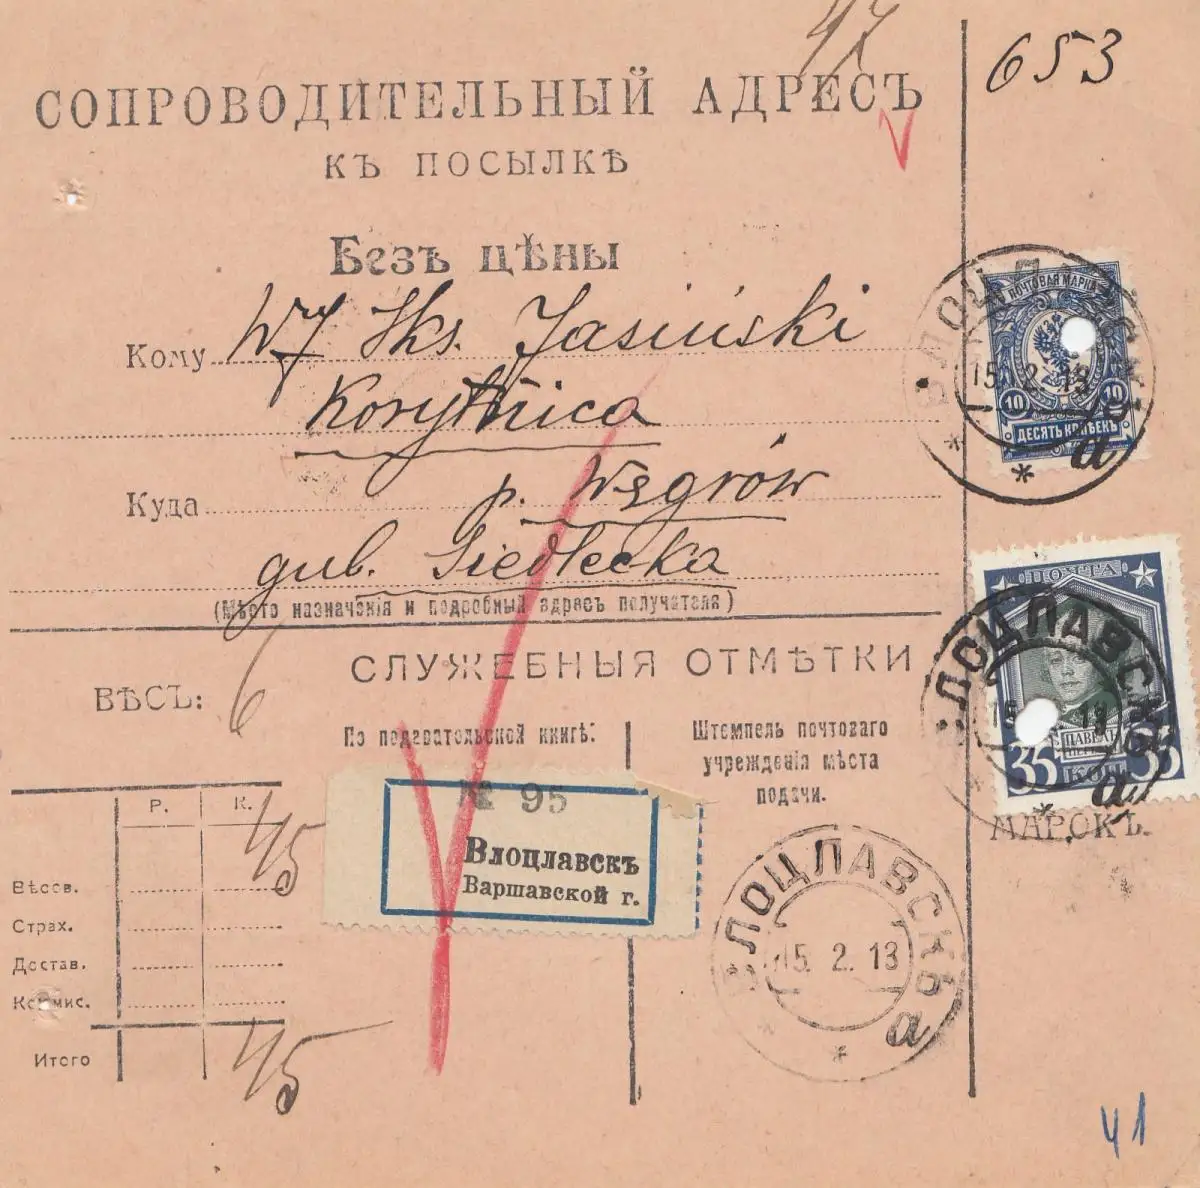 47
653
СОПРОВОДИТЕЛЬНЫЙ АДРЕСЪ
КЪ ПОСЫЛКѢ
Безъ цѣны
Кому WJ Iks. Jasiński
Korytnica
Куда p. Węgrów
gub. Siedlecka
(Мѣсто назначенія и подробный адресъ получателя)
ВЛОЦЛАВСКЪ
15. 2. 13
а
ПОЧТОВАЯ МАРКА
10 10
ДЕСЯТЬ КОПѢЕКЪ
ПОЧТА
ВЛОЦЛАВСКЪ
15 13
а
ПАВЕЛЪ
35 КОП 35
МАРОКЪ.
ВѢСЪ: 6
СЛУЖЕБНЫЯ ОТМѢТКИ
По подавательской книгѣ:
№ 95
Влоцлавскъ
Варшавской г.
Штемпель почтоваго
учрежденія мѣста
подачи.
ВЛОЦЛАВСКЪ
15. 2. 13
а
Р. К.
45
Вѣсов.
Страх.
Достав.
Коммис.
Итого 45
41